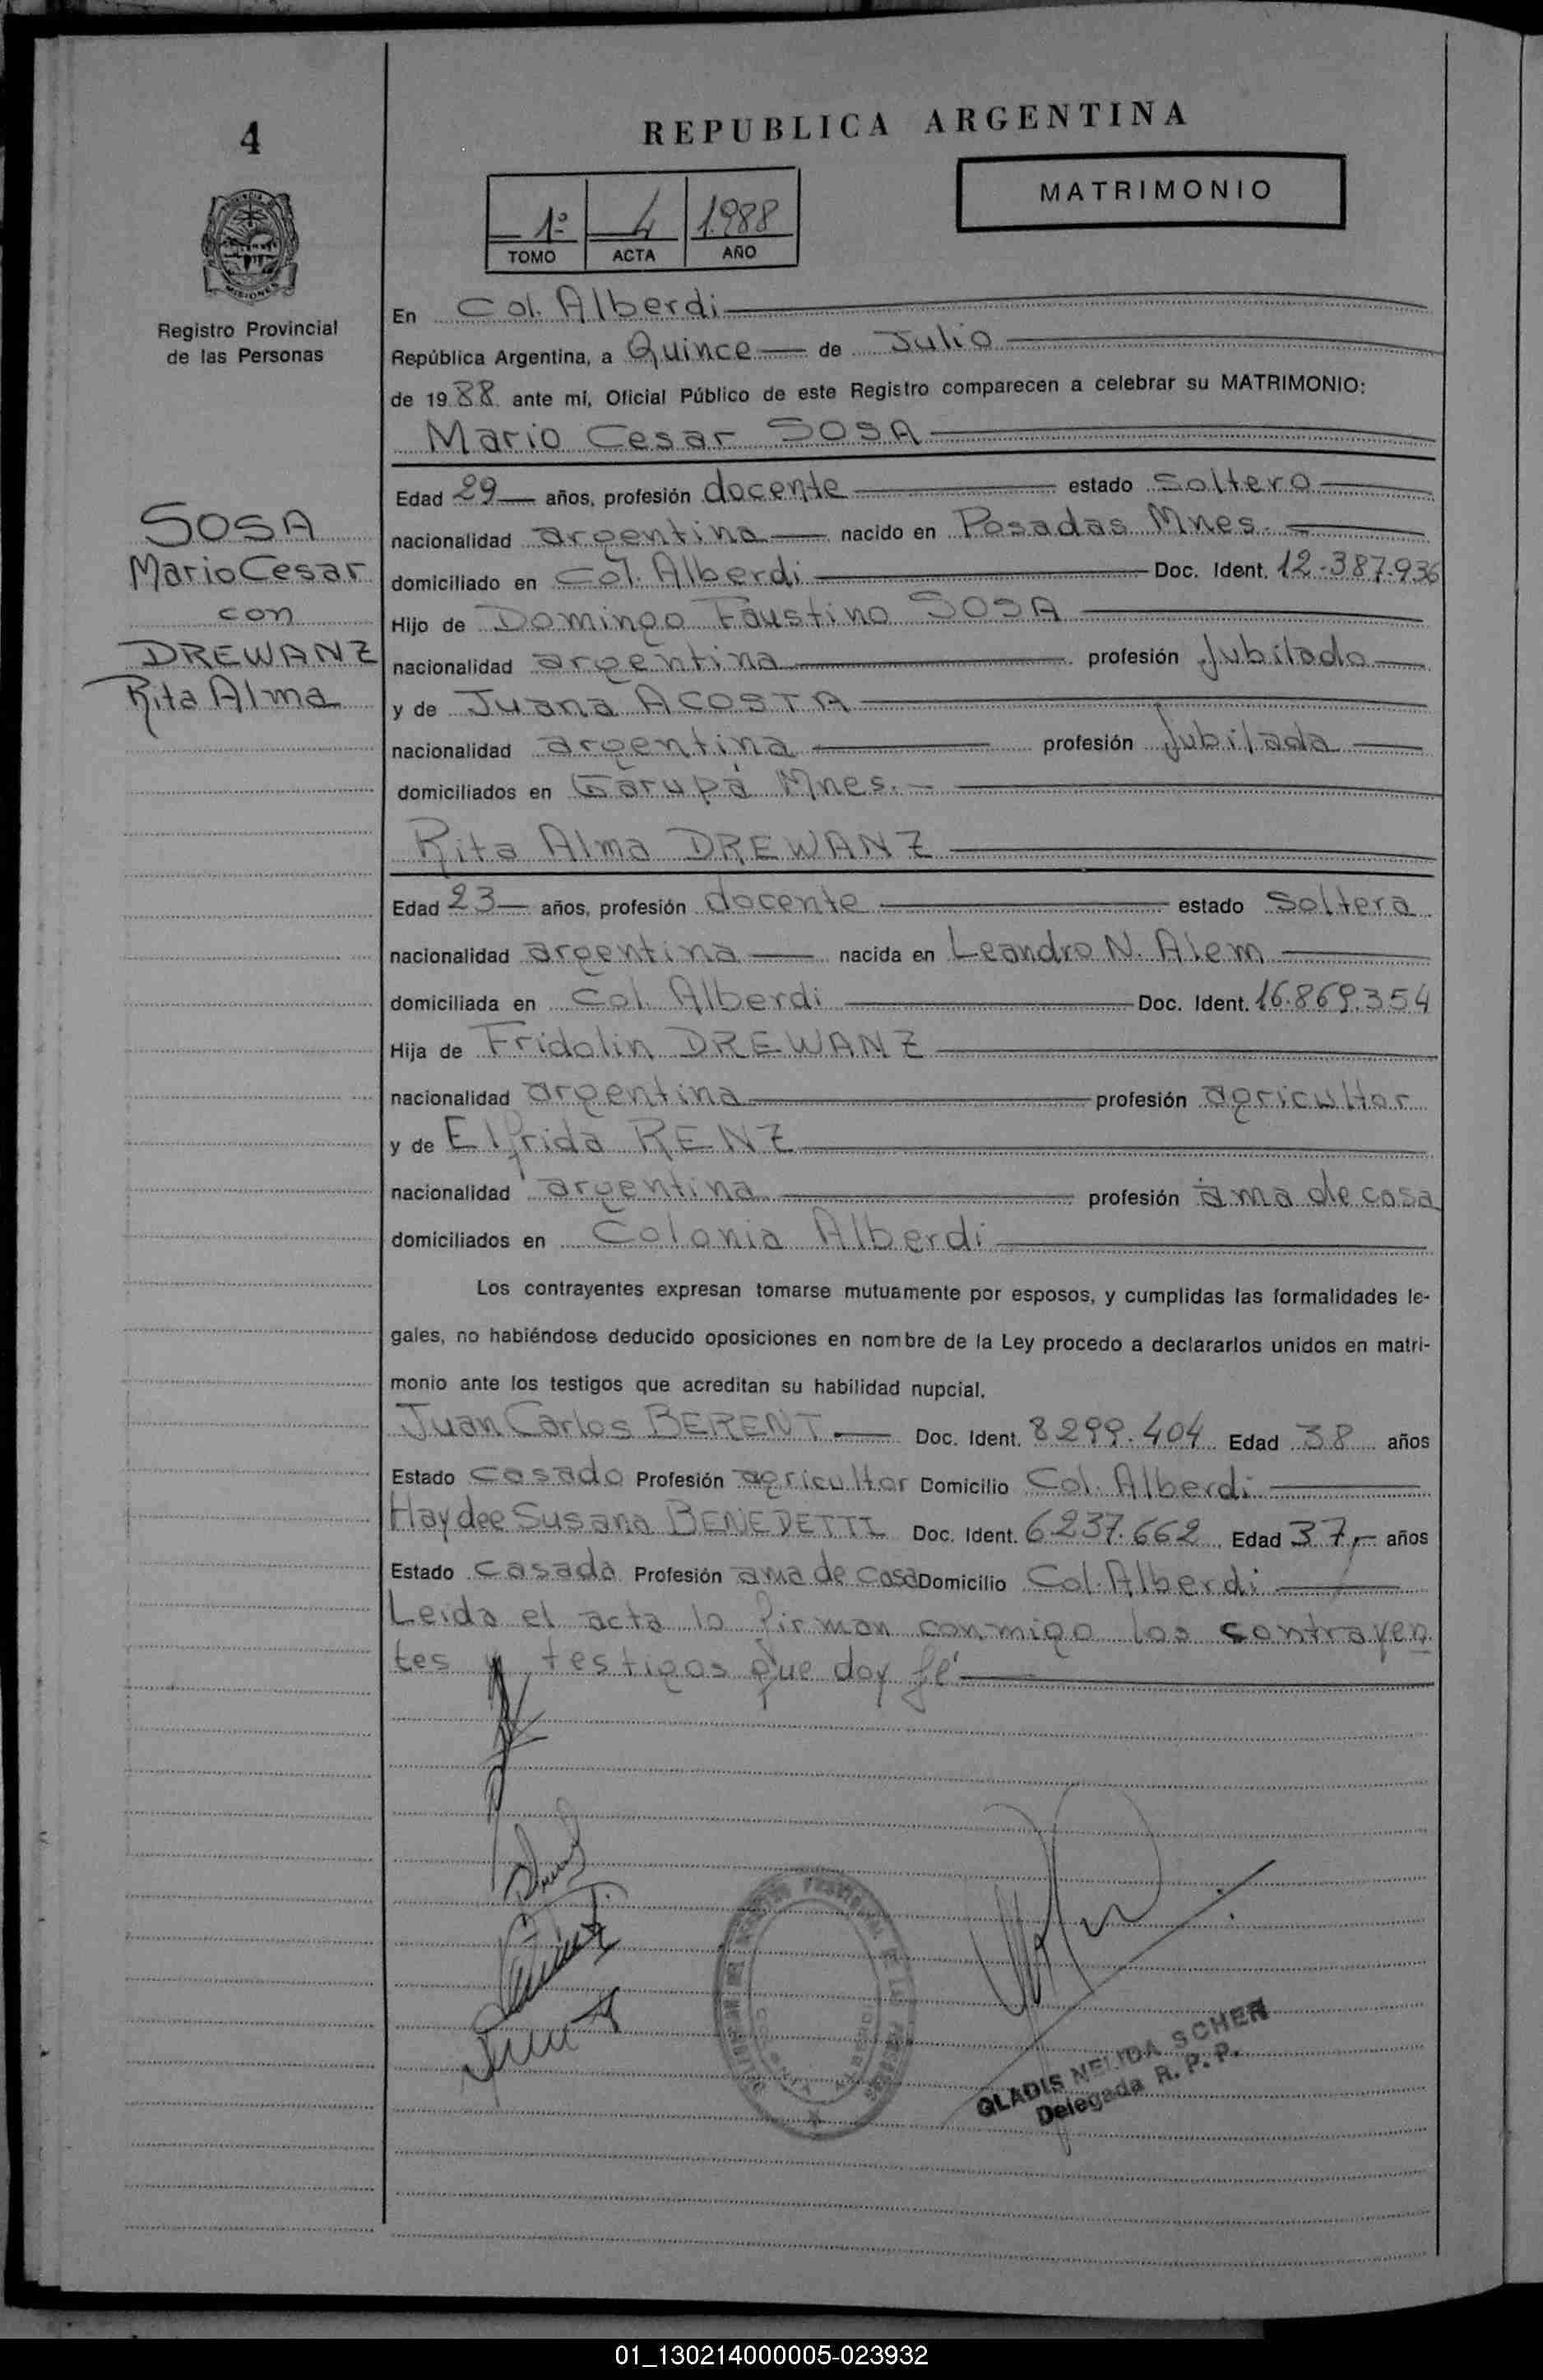 4
REPUBLICA ARGENTINA
MATRIMONIO
1º 4 1.988
TOMO ACTA AÑO
MISIONES
Registro Provincial
de las Personas
SOSA
Mario Cesar
con
DREWANZ
Rita Alma
En Col. Alberdi
República Argentina, a Quince de Julio
de 1988 ante mí, Oficial Público de este Registro comparecen a celebrar su MATRIMONIO:
Mario Cesar SOSA
Edad 29 años, profesión docente estado soltero
nacionalidad argentina nacido en Posadas Mnes.
domiciliado en Col. Alberdi Doc. Ident. 12.387.936
Hijo de Domingo Faustino SOSA
nacionalidad argentina profesión Jubilado
y de Juana ACOSTA
nacionalidad argentina profesión Jubilada
domiciliados en Garupá Mnes.
Rita Alma DREWANZ
Edad 23 años, profesión docente estado soltera
nacionalidad argentina nacida en Leandro N. Alem
domiciliada en Col. Alberdi Doc. Ident. 16.869.354
Hija de Fridolin DREWANZ
nacionalidad argentina profesión agricultor
y de Elfrida RENZ
nacionalidad argentina profesión ama de casa
domiciliados en Colonia Alberdi
Los contrayentes expresan tomarse mutuamente por esposos, y cumplidas las formalidades le-
gales, no habiéndose deducido oposiciones en nombre de la Ley procedo a declararlos unidos en matri-
monio ante los testigos que acreditan su habilidad nupcial.
Juan Carlos BERENT Doc. Ident. 8299.404 Edad 38 años
Estado casado Profesión agricultor Domicilio Col. Alberdi
Haydee Susana BENEDETTI Doc. Ident. 6237.662 Edad 37 años
Estado casada Profesión ama de casa Domicilio Col. Alberdi
Leida el acta la firman conmigo los contrayen
tes y testigos que doy fé
GLADIS NELIDA SCHER
Delegada R. P. P.
01_130214000005-023932